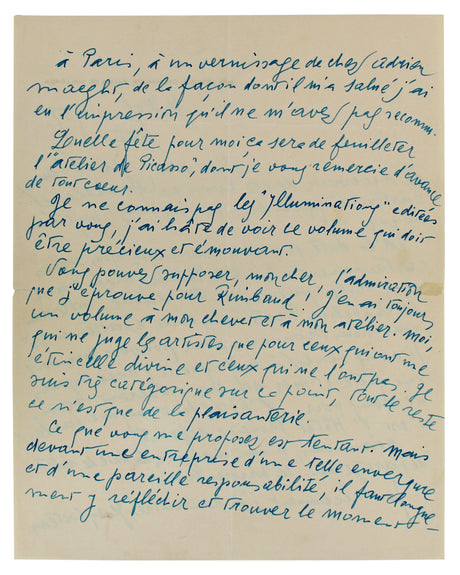 à Paris, à un vernissage de chez Adrien
maeght, de la façon dont il m'a salué j'ai
eu l'impression qu'il ne m'avez pas reconnu.
Quelle fête pour moi ça sera de feuilleter
l'"atelier de Picasso", dont je vous remercie d'avance
de tout coeur.
Je ne connais pas les "Illuminations" editées
par vous, j'ai hâte de voir ce volume qui doit
être précieux et émouvant.
Vous pouvez supposer, mon cher, l'admiration
que j'éprouve pour Rimbaud! j'en ai toujours
un volume à mon chevet et à mon atelier. Moi,
qui ne juge les artistes que pour ceux qui ont une
étincelle divine et ceux qui ne l'ont pas. Je
suis très catégorique sur ce point, tout le reste
ce n'est que de la plaisanterie.
Ce que vous me proposez est tentant. Mais
devant une entreprise d'une telle envergure
et d'une pareille responsabilité, il faut longue-
ment y réfléchir et trouver le moment-